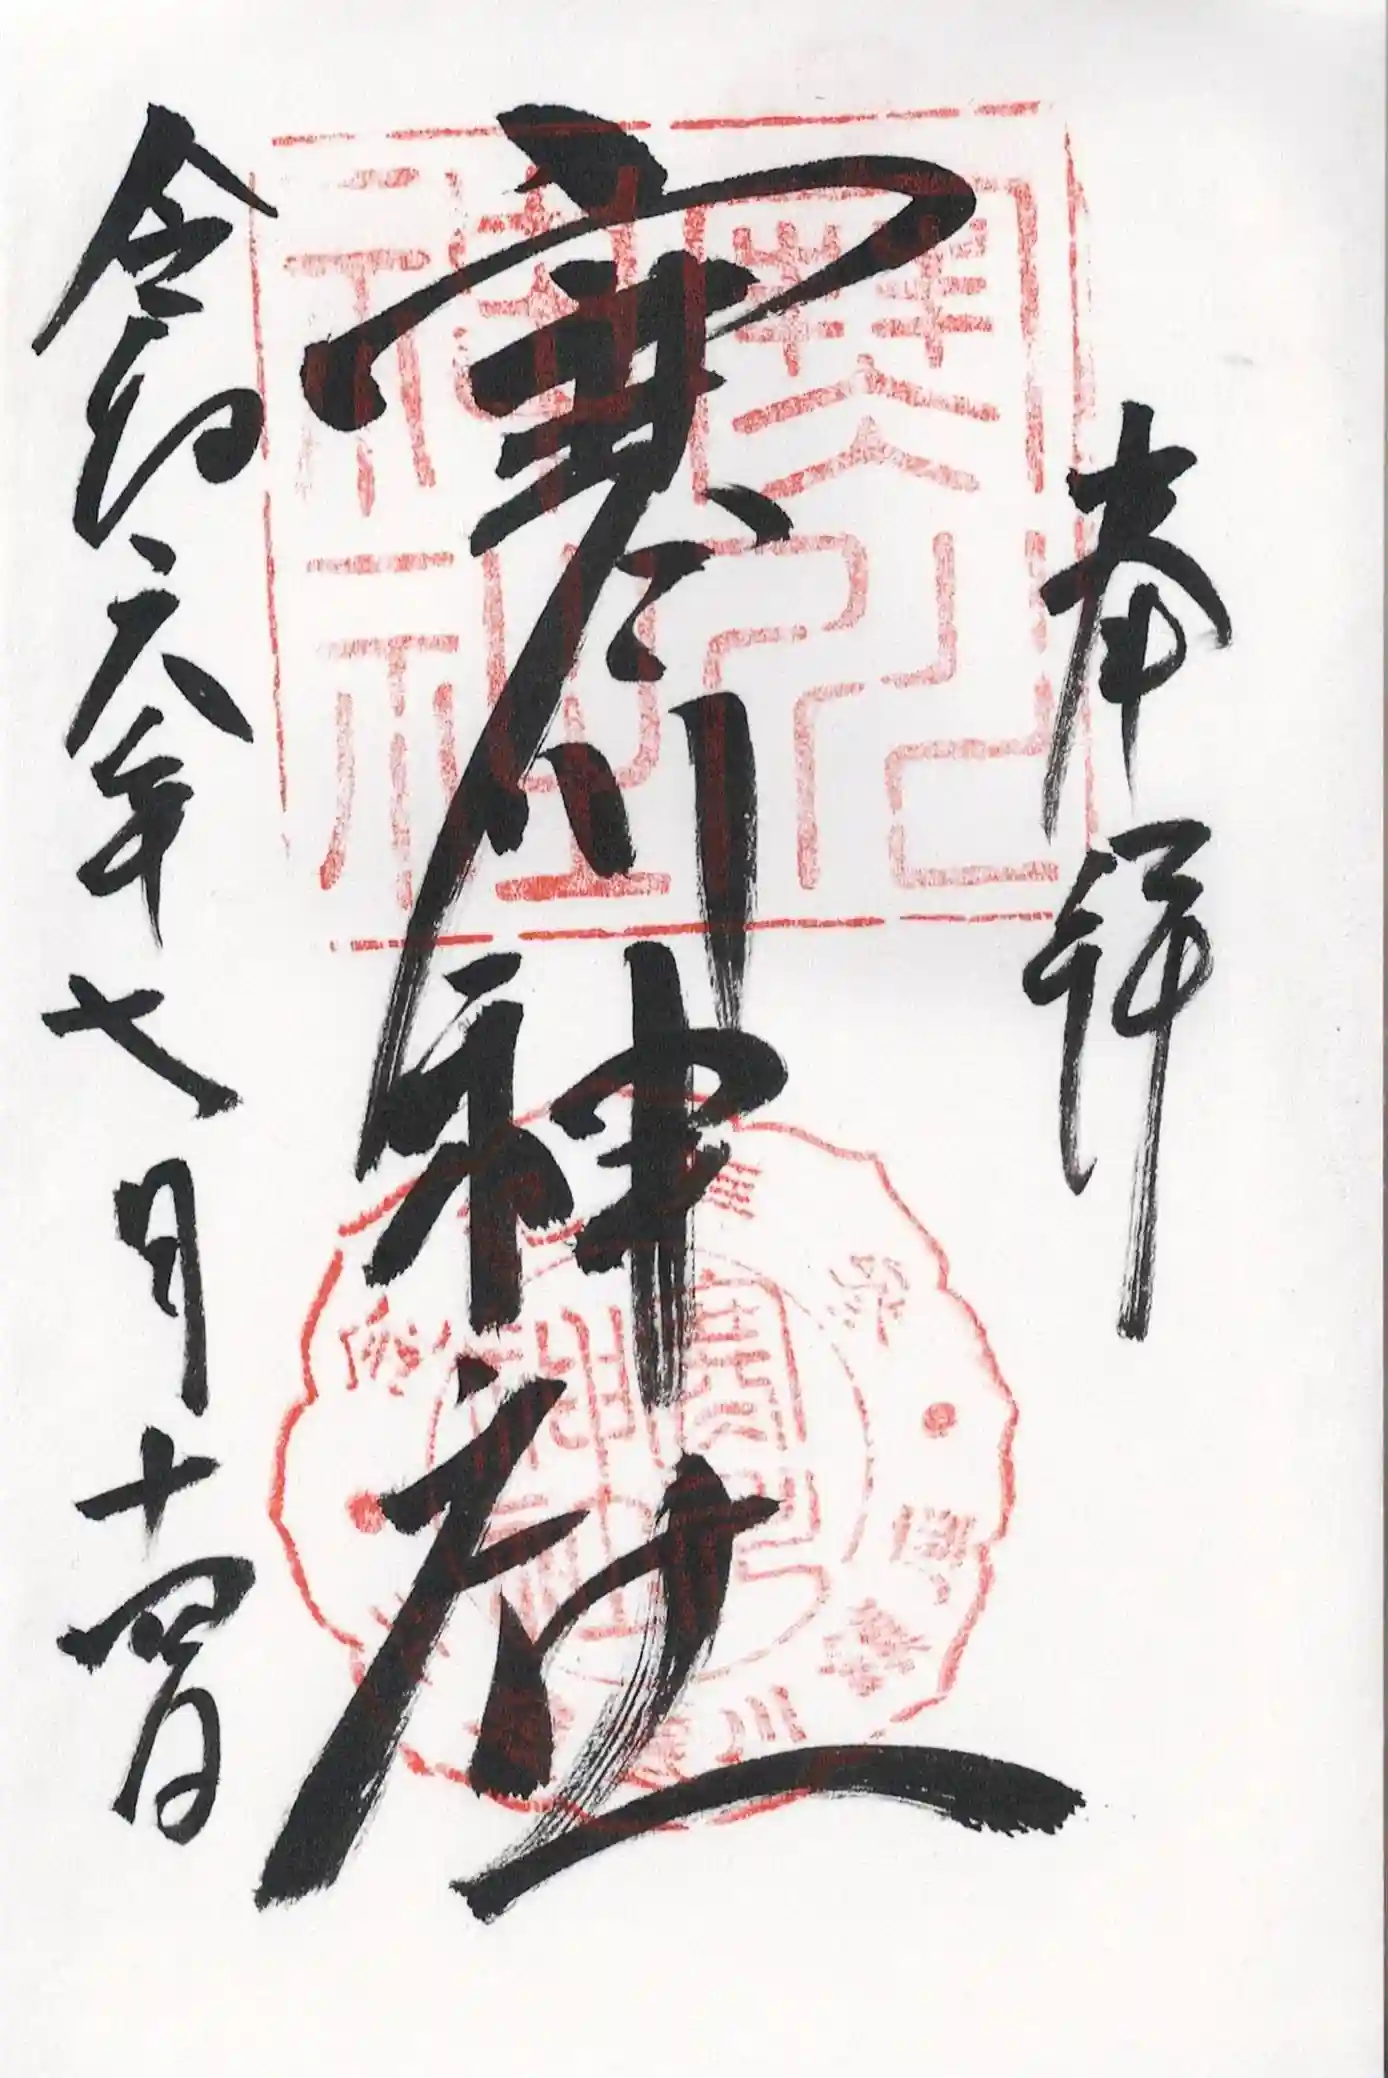 奉拝
寒川神社
令和六年七月十四日
寒川神社